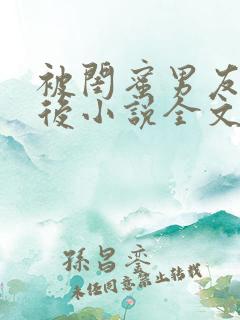 被闺蜜男友
後小說全文
孫昌鑾
未经同意禁止转载